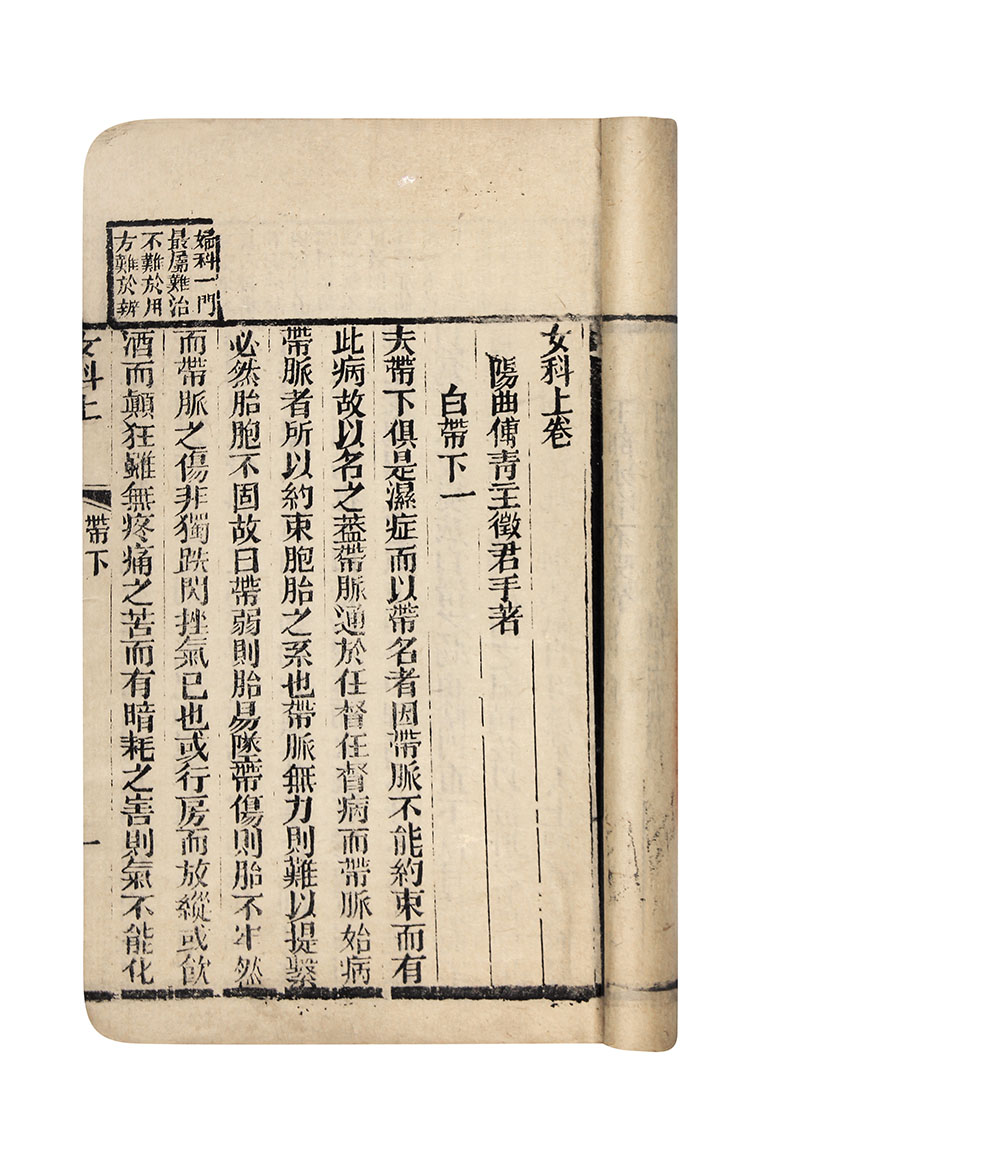 婦科一門
最屬難治
不難於用
方難於辨
女科上卷
陽曲傅青主徵君手著
白帶下一
夫帶下俱是濕症而以帶名者因帶脈不能約束而有
此病故以名之葢帶脈通於任督任督病而帶脈始病
帶脈者所以約束胞胎之系也帶脈無力則難以提繫
必然胎胞不固故曰帶弱則胎易墜帶傷則胎不牢然
而帶脈之傷非獨跌閃挫氣已也或行房而放縱或飲
酒而顛狂雖無疼痛之苦而有暗耗之害則氣不能化
女科上
帶下
一